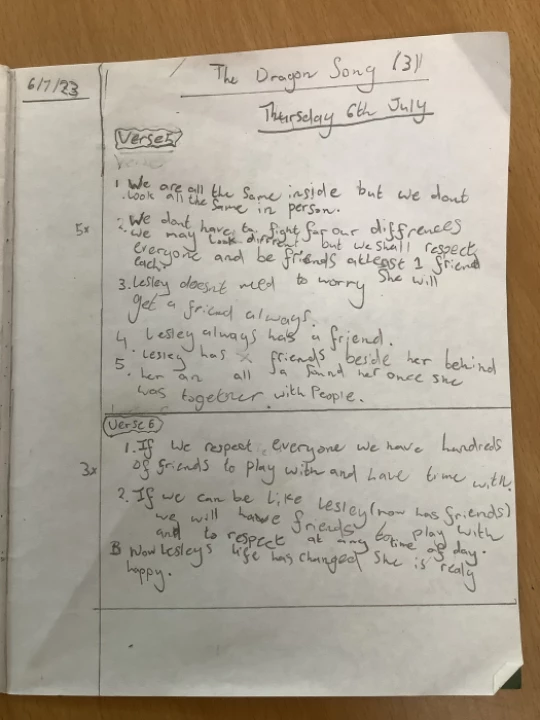 6/7/23
The Dragon Song (3)
Thursday 6th July
Verse 5
1 We are all the same inside but we dont
look all the same in person.
5x
2. We dont have to fight for our differences
we may look different but we shall respect
everyone and be friends atleast 1 friend
each.
3. Lesley doesnt need to worry She will
get a friend always.
4 Lesley always has a friend.
5. Lesley has friends beside her behind
her an all a round her once she
was together with People.
Verse 6
1. If we respect everyone we have hundreds
of friends to play with and have time with.
3x
2. If we can be like Lesley (now has friends)
we will have friends to play with
and to respect at any time of day.
3 Now Lesleys life has changed She is realy
happy.